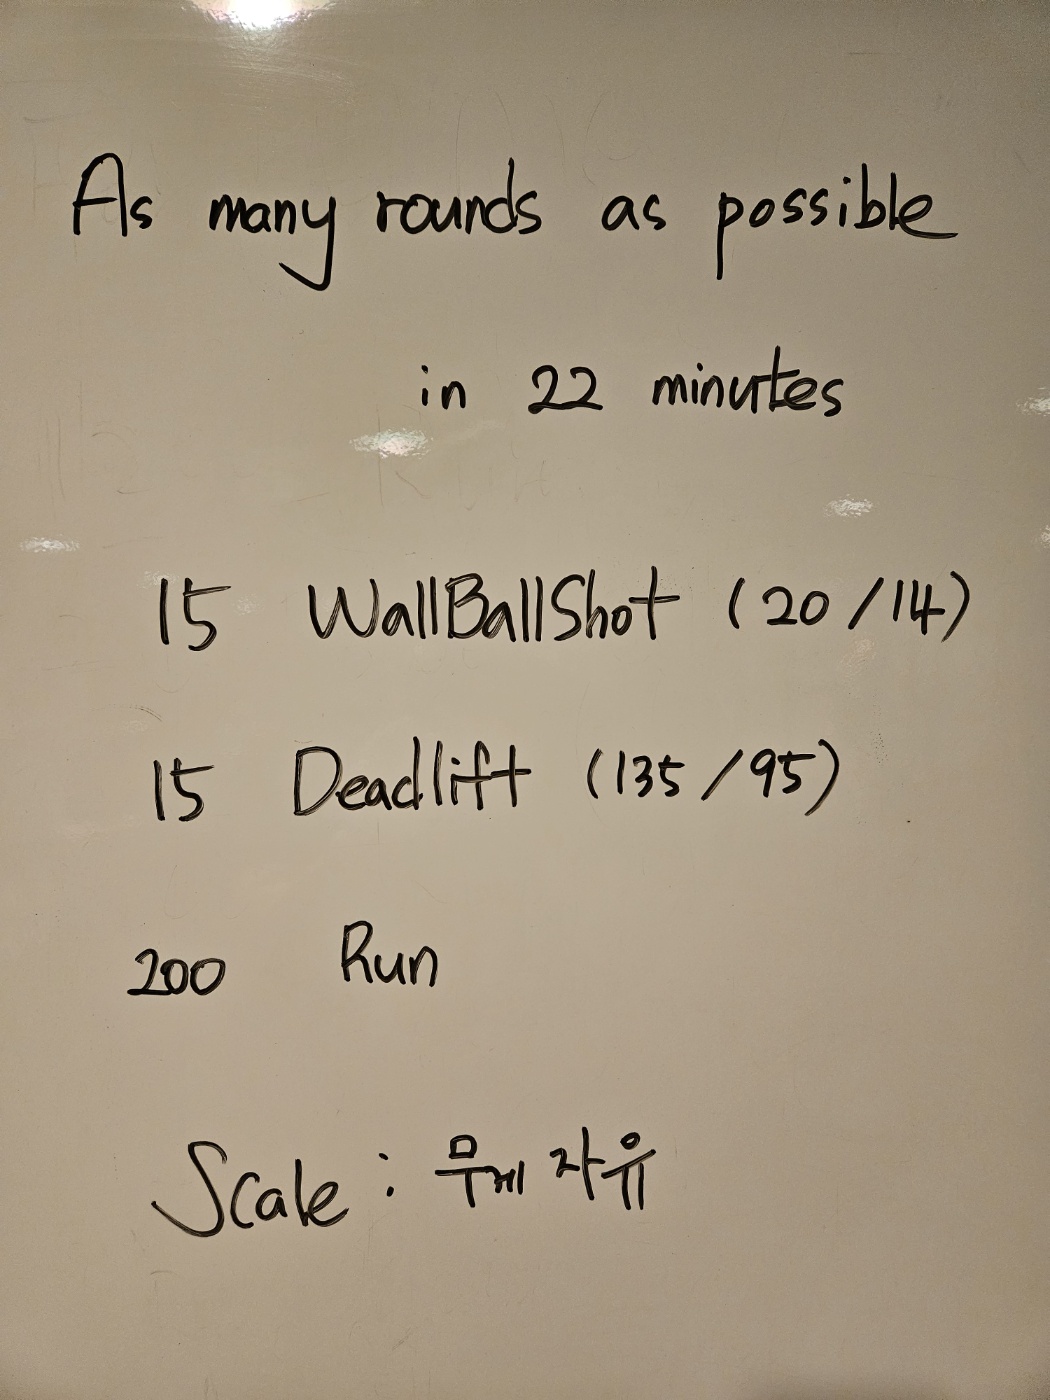 As many rounds as possible
in 22 minutes
15 WallBallShot (20/14)
15 Deadlift (135/95)
200 Run
Scale : 무게 자유